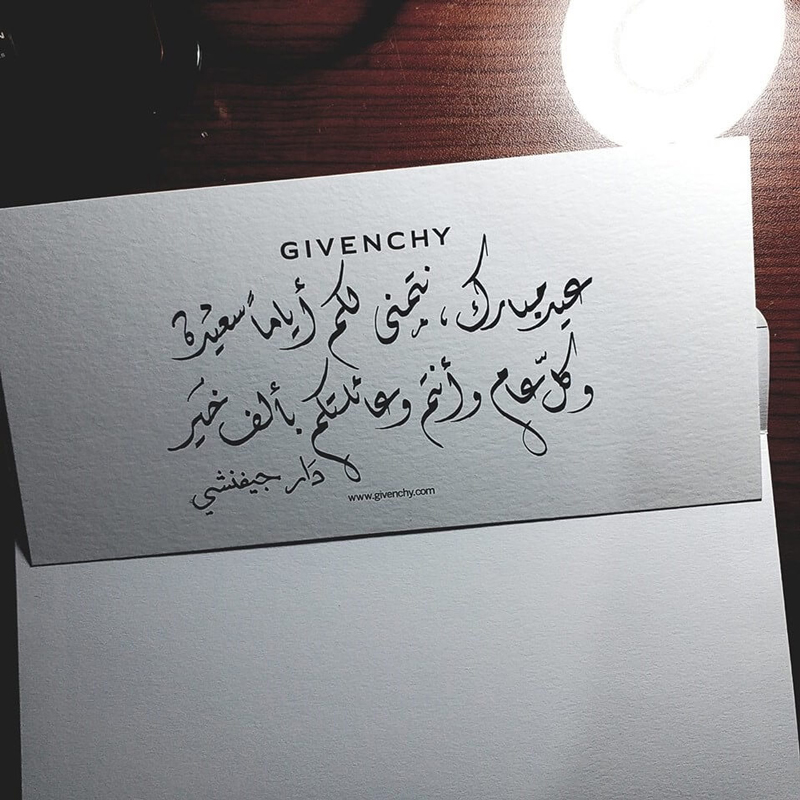 GIVENCHY
عيد مبارك، نتمنى لكم أياماً سعيدة
وكلّ عام وأنتم وعائلتكم بألف خَير
دَار جيفنشي
www.givenchy.com